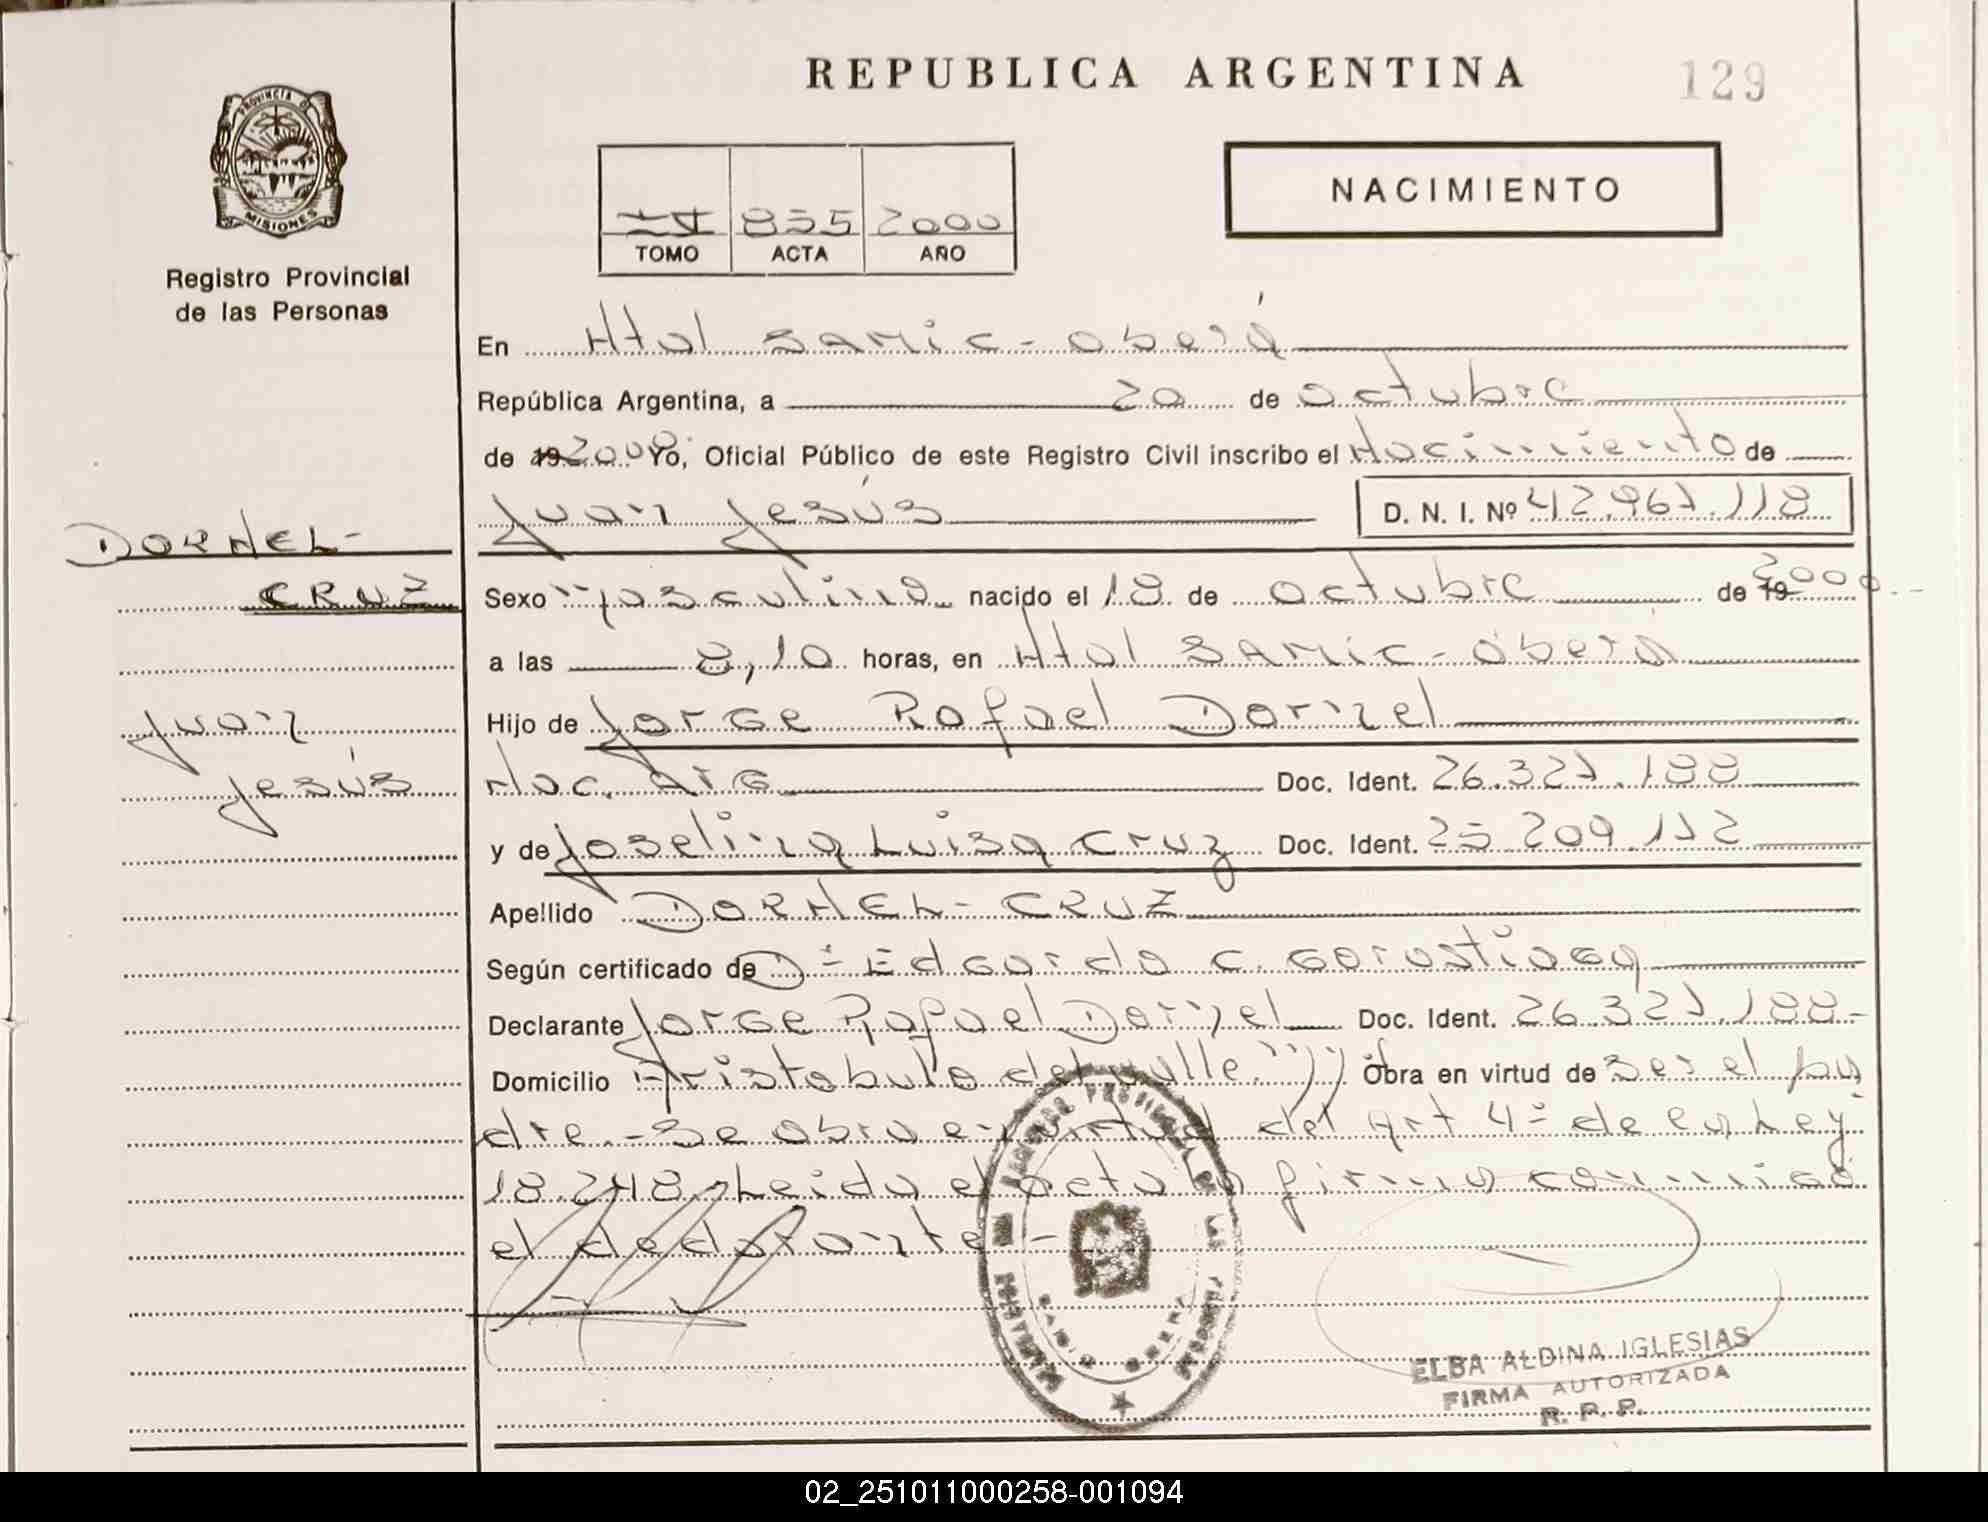 REPUBLICA ARGENTINA
129
PROVINCIA D
MISIONES
Registro Provincial
de las Personas
NACIMIENTO
835 2000
TOMO ACTA AÑO
En Htal SAMIC - Oberá
República Argentina, a 20 de octubre
de 19 2000 Yo, Oficial Público de este Registro Civil inscribo el Nacimiento de
Juan Jesús D. N. I. Nº 42.967.118
DORNEL-
CRUZ
Sexo Masculino nacido el 18 de octubre de 19 2000.-
a las 8,10 horas, en Htal SAMIC - Oberá
Juan
Hijo de Jorge Rafael Dornel
Jesús
Nac. Arg Doc. Ident. 26.327.188
y de Joselina Luisa Cruz Doc. Ident. 25.209.112
Apellido DORNEL - CRUZ
Según certificado de Dº Edgardo C. Gorostiaga
Declarante Jorge Rafael Dornel Doc. Ident. 26.327.188-
Domicilio Aristobulo del valle. Obra en virtud de ser el pa
dre.- Se obra en virtud del Art 4º de la Ley
18.248. Leida el acta la firma conmigo
el declarante -
ELBA ALDINA IGLESIAS
FIRMA AUTORIZADA
R. P. P.
02_251011000258-001094